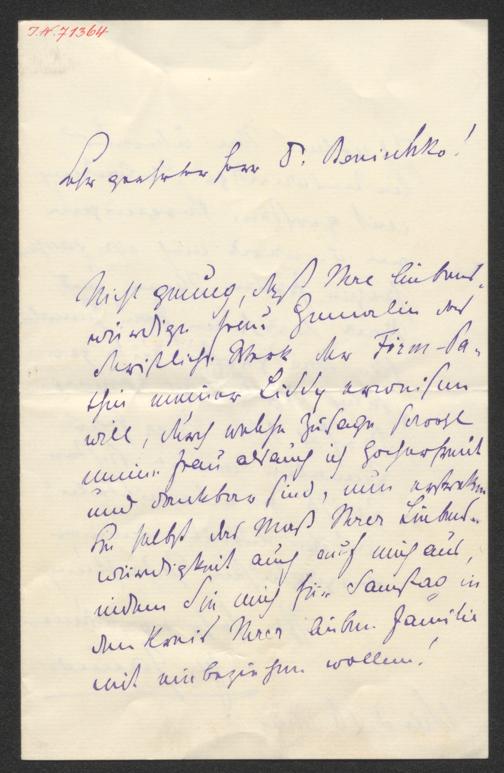 J.N. 71364
Sehr geehrter Herr D. Benischko!
Nicht genug, daß Ihre liebens-
würdige Frau Gemalin das
christliche Werk der Firm-Pa-
thin meiner Liddy erweisen
will, durch welche Zusage sowohl
meine Frau als auch ich hocherfreut
und dankbar sind, nun erstrecken
Sie selbst das Maß Ihrer Liebens-
würdigkeit auch auf mich aus,
indem Sie mich für Samstag in
den Kreis Ihrer lieben Familie
mit einbeziehen wollen!